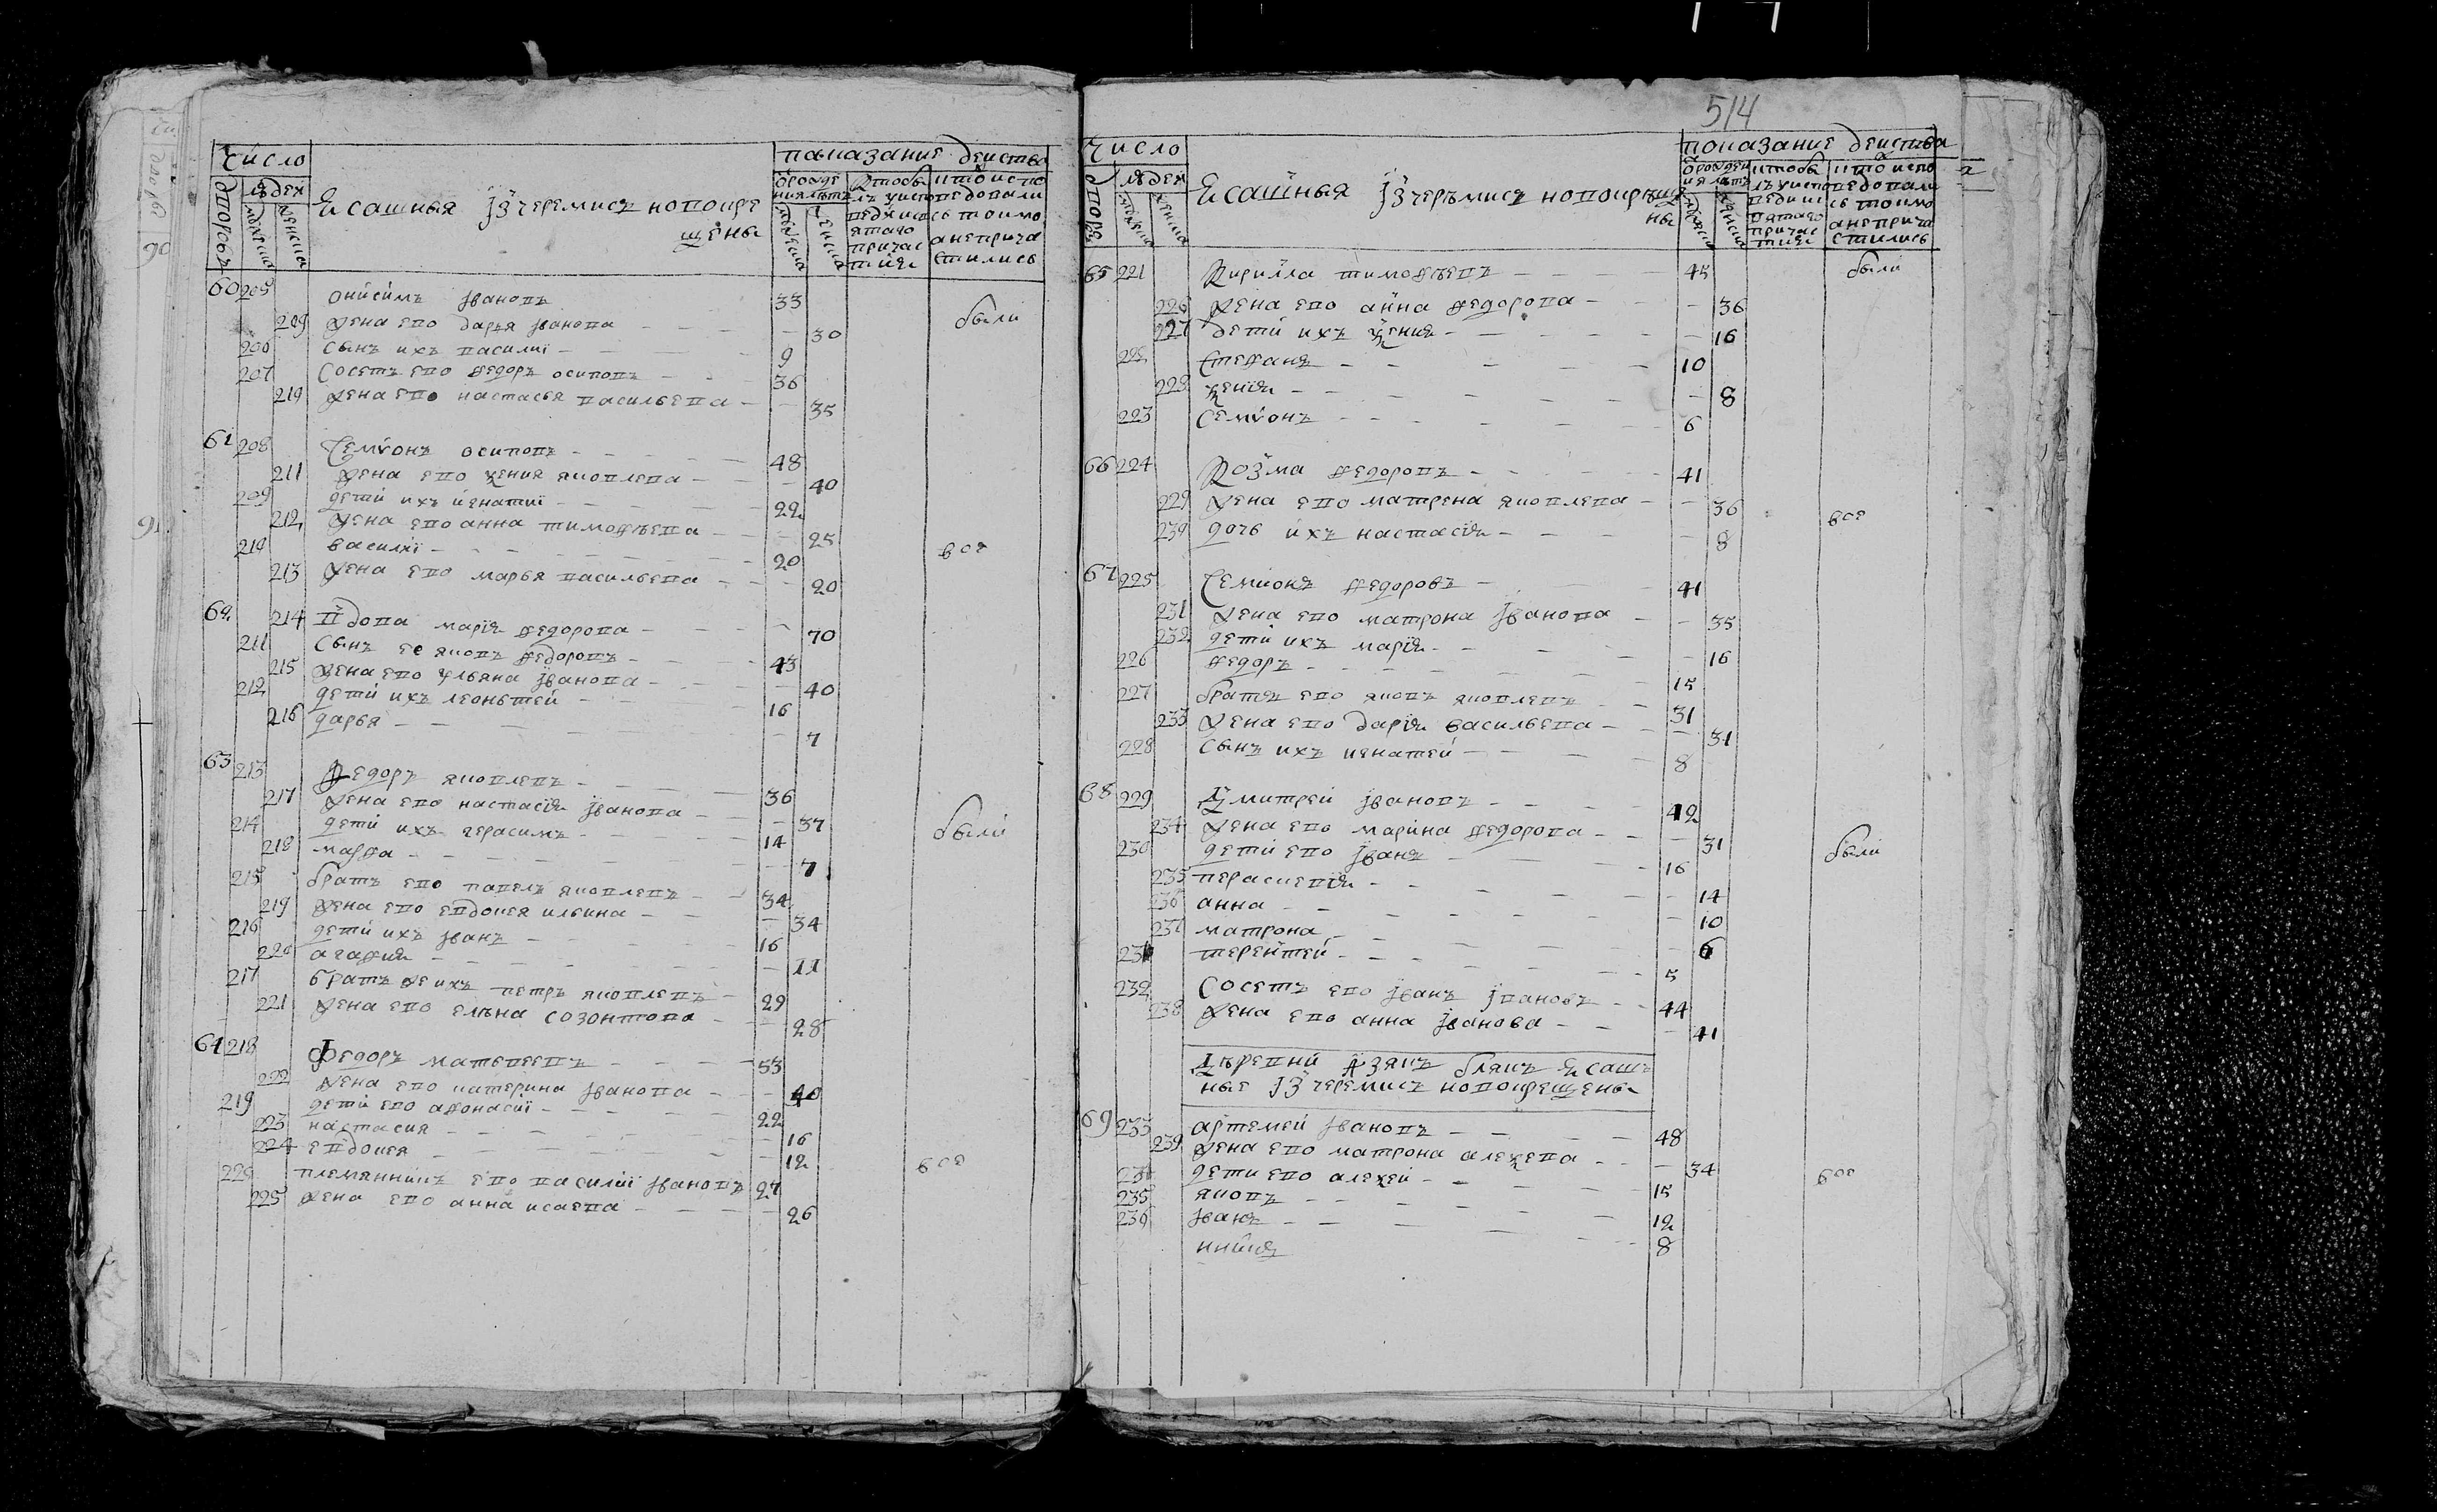 514
число
показание деиства
дворовъ
людеи
мужеска
женска
Ясашныя Iзчеремисъ новокре
щены
60 205 Онисимъ Iвановъ 33 были
209 жена ево дарья Iванова 30
206 сынъ ихъ василиı 9
207 Сосетъ ево федоръ осиповъ 36
210 жена ево настасья васильева 35
61 208 Семıонъ осиповъ 48
211 жена ево ѯения яковлева 40
209 дети ихъ игнатиı 22
212 жена ево анна тимофѣева 25
210 василиı 20 вое
213 жена ево марья васильева 20
62 214 Вдова мария федорова 70
211 Сынъ ее яковъ федоровъ 43
215 жена ево ульяна Iванова 40
212 дети ихъ леонътей 16
216 дарья 7
63 213 Федоръ яковлевъ 36
217 жена ево настасия Iванова 37
214 дети ихъ герасимъ 14 были
218 марфа 7
215 братъ ево павелъ яковлевъ 34
219 жена ево евдокея ильина 34
216 дети ихъ Iванъ 16
220 агафия 11
217 братъ же ихъ петръ яковлевъ 29
221 жена ево елѣна созонтова 28
64 218 Федоръ матвеевъ 53
222 жена ево катерина Iванова 40
219 дети ево афонасиı 22
223 настасия 16
224 евдокея 12 вое
220 племянникъ ево василиı Iвановъ 27
225 жена ево анна исаева 26
число
показание деиства
людеи
Ясашныя Iзчерѣмисъ новокрѣще
ны
65 221 Кирила тимофѣевъ 45 были
226 жена ево анна федорова 36
227 дети ихъ ѯения 16
222 Стефанъ 10
228 ѯения 8
223 Семıонъ 6
66 224 Козма федоровъ 41
229 жена ево матрена яковлева 36 вое
230 дочь ихъ настасıя 8
67 225 Семионъ федоровъ 41
231 жена ево матрона Iванова 35
232 дети ихъ марıя 16
226 федоръ 15
227 братъ ево яковъ яковлевъ 31
233 жена ево дарıя васильева 31
228 сынъ ихъ игнатей 8
68 229 Дмитреи Iвановъ 42
234 жена ево марина федорова 31
230 дети ево Iванъ 16 были
235 перасцевıя 14
236 анна 10
237 матрона 6
231 терентей 5
232 Сосетъ ево Iванъ Iвановъ 44
238 жена ево анна Iванова 41
Дѣревни Азякъ блякъ Ясаш
ные Iзчеремисъ новокрещены
69 233 артемей Iвановъ 48
239 жена ево матрона алеѯева 34
234 дети ево алеѯей 15 вое
235 яковъ 12
236 Iванъ 8